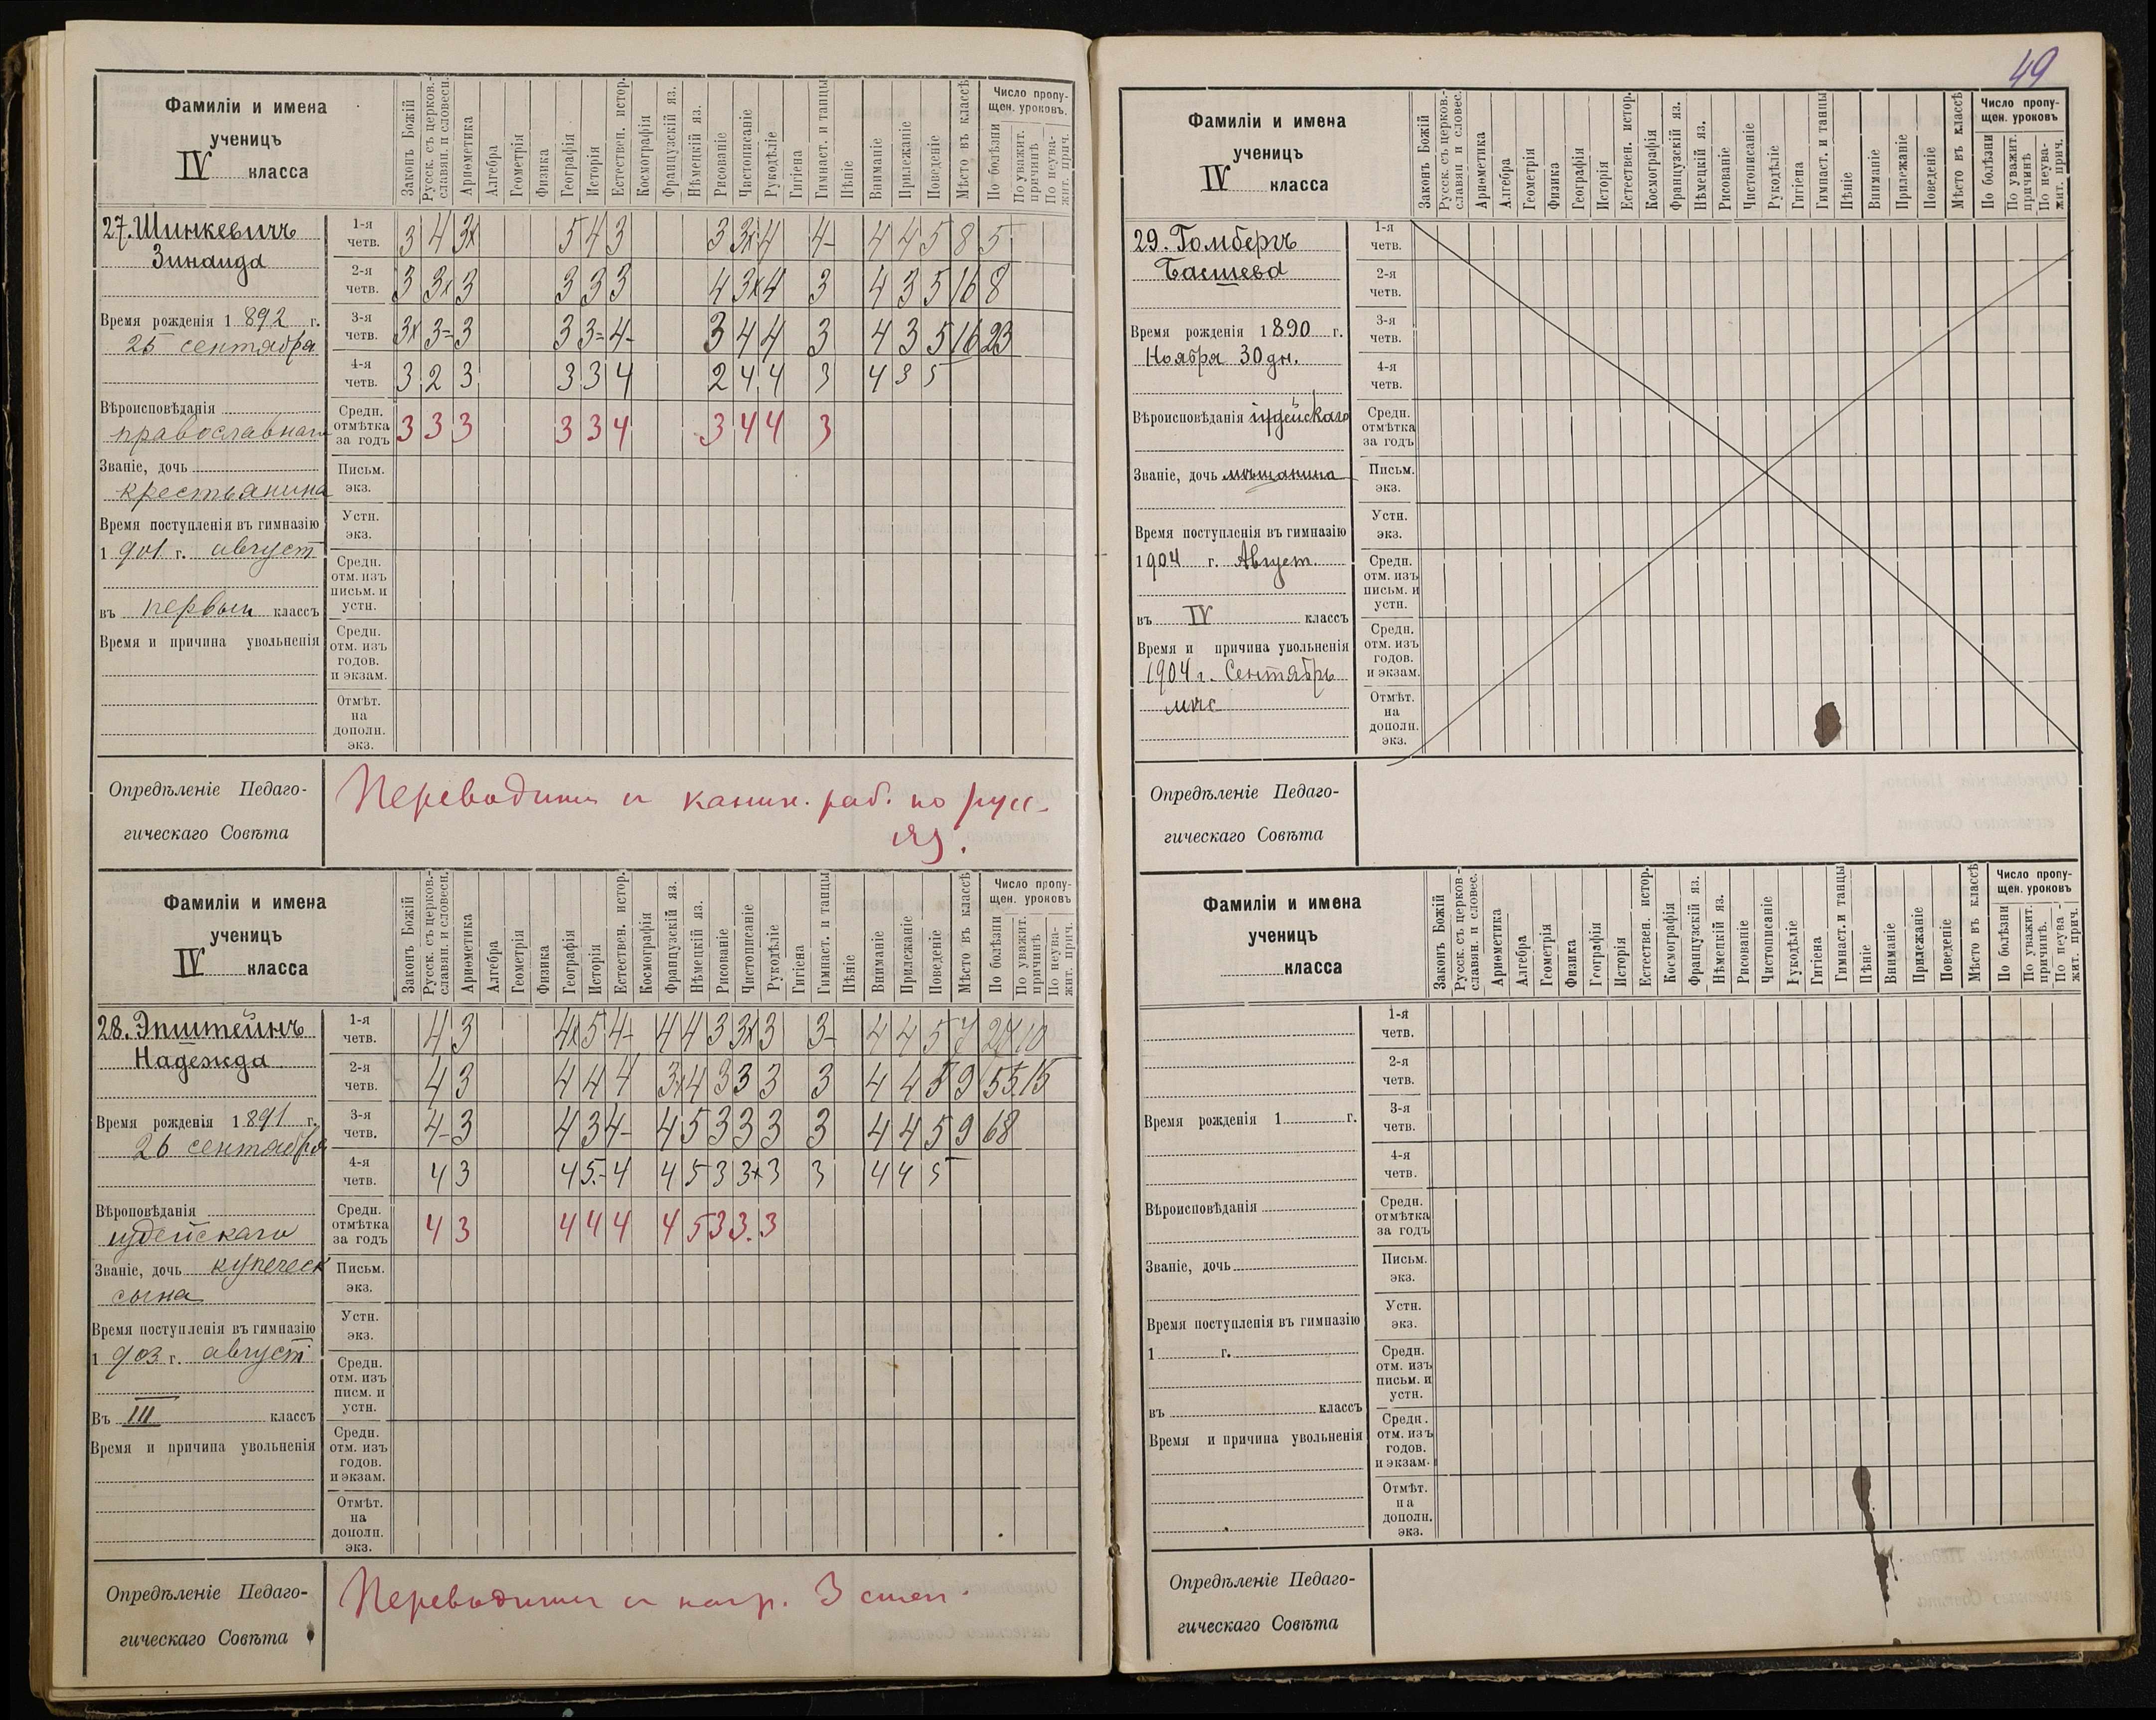 49
Фамиліи и имена
ученицъ
IV класса
Законъ Божій
Русск. съ церков.-
славян. и словесн.
Ариѳметика
Алгебра
Геометрія
Физика
Географія
Исторія
Естествен. истор.
Космографія
Французскій яз.
Нѣмецкій яз.
Рисованіе
Чистописаніе
Рукодѣліе
Гигіена
Гимнаст. и танцы
Пѣніе
Вниманіе
Прилежаніе
Поведеніе
Мѣсто въ классѣ
Число пропу-
щен. уроковъ.
По болѣзни
По уважит.
причинѣ
По неува-
жит. прич.
27. Шинкевичъ
Зинаида
Время рожденія 1892 г.
25 сентября
Вѣроисповѣданія
православнаго
Званіе, дочь
крестьянина
Время поступленія въ гимназію
1901 г. август
въ первый классъ
Время и причина увольненія
1-я четв. 3 4 3х 5 4 3 3 3х 4 4- 4 4 5 8 5
2-я четв. 3 3х 3 3 3 3 4 3х 4 3 4 3 5 16 8
3-я четв. 3х 3= 3 3 3= 4- 3 4 4 3 4 3 5 16 23
4-я четв. 3 2 3 3 3 4 2 4 4 3 4 3 5
Средн. отмѣтка за годъ 3 3 3 3 3 4 3 4 4 3
Письм. экз.
Устн. экз.
Средн. отм. изъ письм. и устн.
Средн. отм. изъ годов. и экзам.
Отмѣт. на дополн. экз.
Опредѣленіе Педаго-
гическаго Совѣта
Переводится с каник. раб. по русс.
яз.
Фамиліи и имена
ученицъ
IV класса
Законъ Божій
Русск. съ церков.-
славян. и словесн.
Ариѳметика
Алгебра
Геометрія
Физика
Географія
Исторія
Естествен. истор.
Космографія
Французскій яз.
Нѣмецкій яз.
Рисованіе
Чистописаніе
Рукодѣліе
Гигіена
Гимнаст. и танцы
Пѣніе
Вниманіе
Прилежаніе
Поведеніе
Мѣсто въ классѣ
Число пропу-
щен. уроковъ
По болѣзни
По уважит.
причинѣ
По неува-
жит. прич.
28. Эпштейнъ
Надежда
Время рожденія 1891 г.
26 сентября
Вѣроповѣданія
іудейскаго
Званіе, дочь купеческ
сына
Время поступленія въ гимназію
1903 г. август
Въ III классъ
Время и причина увольненія
1-я четв. 4 3 4х 5 4- 4 4 3 3х 3 3- 4 4 5 7 27 10
2-я четв. 4 3 4 4 4 3х 4 3 3 3 3 4 4 5 9 55 15
3-я четв. 4- 3 4 3 4- 4 5 3 3 3 3 4 4 5 9 68
4-я четв. 4 3 4 5- 4 4 5 3 3х 3 3 4 4 5
Средн. отмѣтка за годъ 4 3 4 4 4 4 5 3 3. 3
Письм. экз.
Устн. экз.
Средн. отм. изъ писм. и устн.
Средн. отм. изъ годов. и экзам.
Отмѣт. на дополн. экз.
Опредѣленіе Педаго-
гическаго Совѣта
Переводится с нагр. 3 степ.
Фамиліи и имена
ученицъ
IV класса
Законъ Божій
Русск. съ церков.-
славян и словес.
Ариѳметика
Алгебра
Геометрія
Физика
Географія
Исторія
Естествен. истор.
Космографія
Французскій яз.
Нѣмецкій яз.
Рисованіе
Чистописаніе
Рукодѣліе
Гигіена
Гимнаст. и танцы
Пѣніе
Вниманіе
Прилежаніе
Поведеніе
Мѣсто въ классѣ
Число пропу-
щен. уроковъ
По болѣзни
По уважит.
причинѣ
По неува-
жит. прич.
29. Гомбергъ
Басшева
Время рожденія 1890 г.
Ноября 30 дн.
Вѣроисповѣданія іудейскаго
Званіе, дочь мѣщанина
Время поступленія въ гимназію
1904 г. Август.
въ IV классъ
Время и причина увольненія
1904 г. Сентябрь
мѣс
1-я четв.
2-я четв.
3-я четв.
4-я четв.
Средн. отмѣтка за годъ
Письм. экз.
Устн. экз.
Средн. отм. изъ письм. и устн.
Средн. отм. изъ годов. и экзам.
Отмѣт. на дополн. экз.
Опредѣленіе Педаго-
гическаго Совѣта
Фамиліи и имена
ученицъ
класса
Законъ Божій
Русск. съ церков-
славян. и словес.
Ариѳметика
Алгебра
Геометрія
Физика
Географія
Исторія
Естествен. истор.
Космографія
Французскій яз.
Нѣмецкій яз.
Рисованіе
Чистописаніе
Рукодѣліе
Гигіена
Гимнаст. и танцы
Пѣніе
Вниманіе
Прилежаніе
Поведеніе
Мѣсто въ классѣ
Число пропу-
щен. уроковъ
По болѣзни
По уважит.
причинѣ.
По неува-
жит. прич.
Время рожденія 1 г.
Вѣроисповѣданія
Званіе, дочь
Время поступленія въ гимназію
1 г.
въ классъ
Время и причина увольненія
1-я четв.
2-я четв.
3-я четв.
4-я четв.
Средн. отмѣтка за годъ
Письм. экз.
Устн. экз.
Средн. отм. изъ письм. и устн.
Средн. отм. изъ годов. и экзам.
Отмѣт. на дополн. экз.
Опредѣленіе Педаго-
гическаго Совѣта